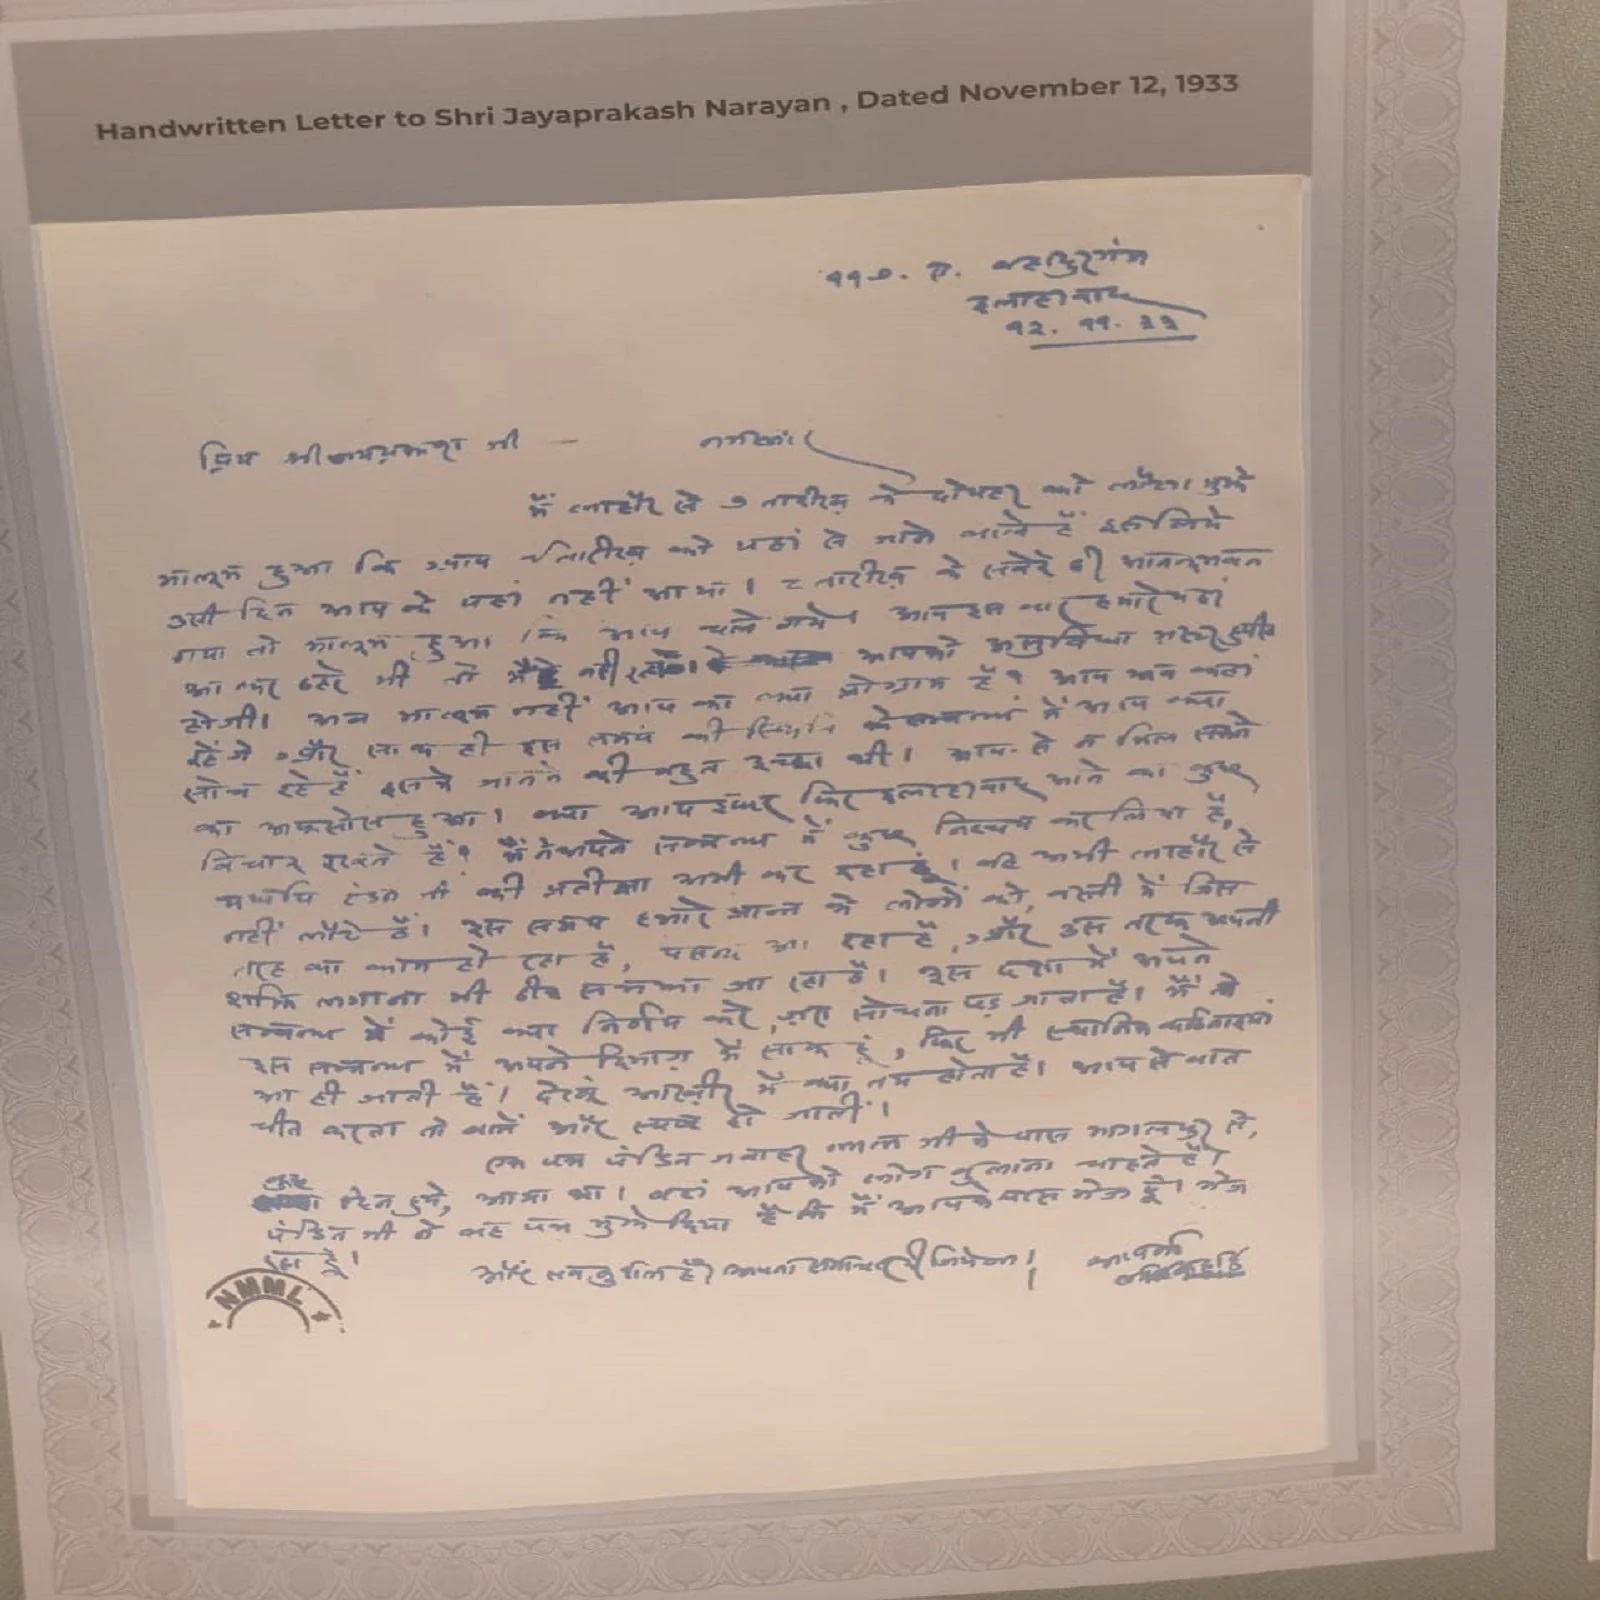 Handwritten Letter to Shri Jayaprakash Narayan , Dated November 12, 1933
११७. ए. बहादुरगंज
इलाहाबाद
१२. ११. ३३
प्रिय श्री जयप्रकाश जी — नमस्कार
मैं लाहौर से ७ तारीख़ के दोपहर को लौटा। मुझे
मालूम हुआ कि आप तारीख़ को यहां से जाने वाले हैं इसलिये
उसी दिन आप के यहां नहीं आया। ८ तारीख़ के सवेरे ही आनन्दभवन
गया तो मालूम हुआ कि आप चले गये। आप इस बार हमारे यहां
आकर ठहरे भी तो मैं नहीं आपको असुविधा ज़रूर हुयी
होगी। अब मालूम नहीं आप का क्या प्रोग्राम है? आप अब कहां
रहेंगे और साथ ही इस समय की स्थिति के सम्बन्ध में आप क्या
सोच रहे हैं इसके जानने की बहुत इच्छा थी। आप से न मिल सकने
का अफ़सोस हुआ। क्या आप इधर फिर इलाहाबाद आने का कुछ
विचार रखते हैं? मैंने अपने सम्बन्ध में कुछ निश्चय कर लिया है,
यद्यपि टंडन जी की प्रतीक्षा अभी कर रहा हूं। वह अभी लाहौर से
नहीं लौटे हैं। इस समय हमारे प्रान्त के लोगों को, बस्ती में जिस
तरह का काम हो रहा है, पसन्द आ रहा है, और उस तरफ़ अपनी
शक्ति लगाना भी ठीक समझा जा रहा है। इस दशा में अपने
सम्बन्ध में कोई क्या निर्णय करे, ज़रा सोचना पड़ जाता है। मैं तो
इस सम्बन्ध में अपने दिमाग़ में साफ़ हूं, फिर भी स्थानिक कठिनाइयां
आ ही जाती हैं। देखूं आख़ीर में क्या तय होता है। आप से बात
चीत करता तो बातें और स्पष्ट हो जातीं।
एक पत्र पंडित जवाहर लाल जी के पास भागलपुर से,
कुछ दिन हुये, आया था। वहां आपको लोग बुलाना चाहते हैं।
पंडित जी ने वह पत्र मुझे दिया है कि मैं आपके पास भेज दूं। भेज
रहा हूं।
और सब कुशल है। अपना समाचार दीजियेगा।
आपका
NMML